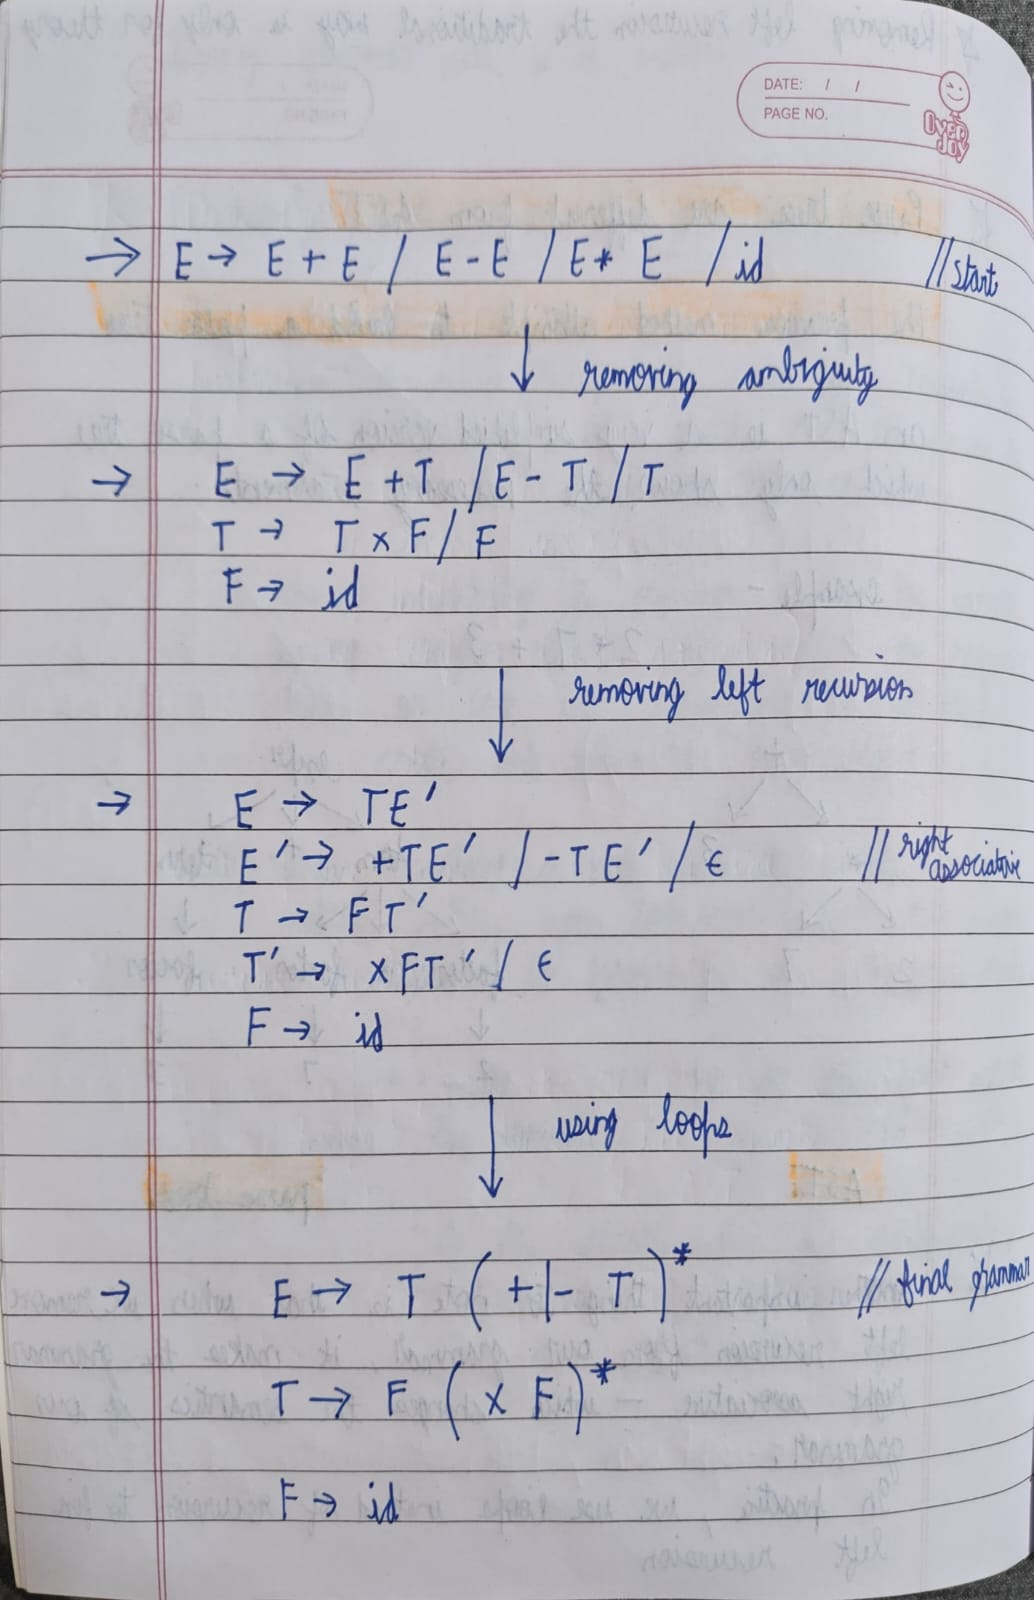 DATE: / /
PAGE NO.
OVER JOY
→ E → E + E / E - E / E * E / id // start
↓ removing ambiguity
→ E → E + T / E - T / T
T → T × F / F
F → id
↓ removing left recursion
→ E → TE'
E' → +TE' / -TE' / ϵ // right associative
T → FT'
T' → ×FT' / ϵ
F → id
↓ using loops
→ E → T (+|- T)* // final grammar
T → F (× F)*
F → id